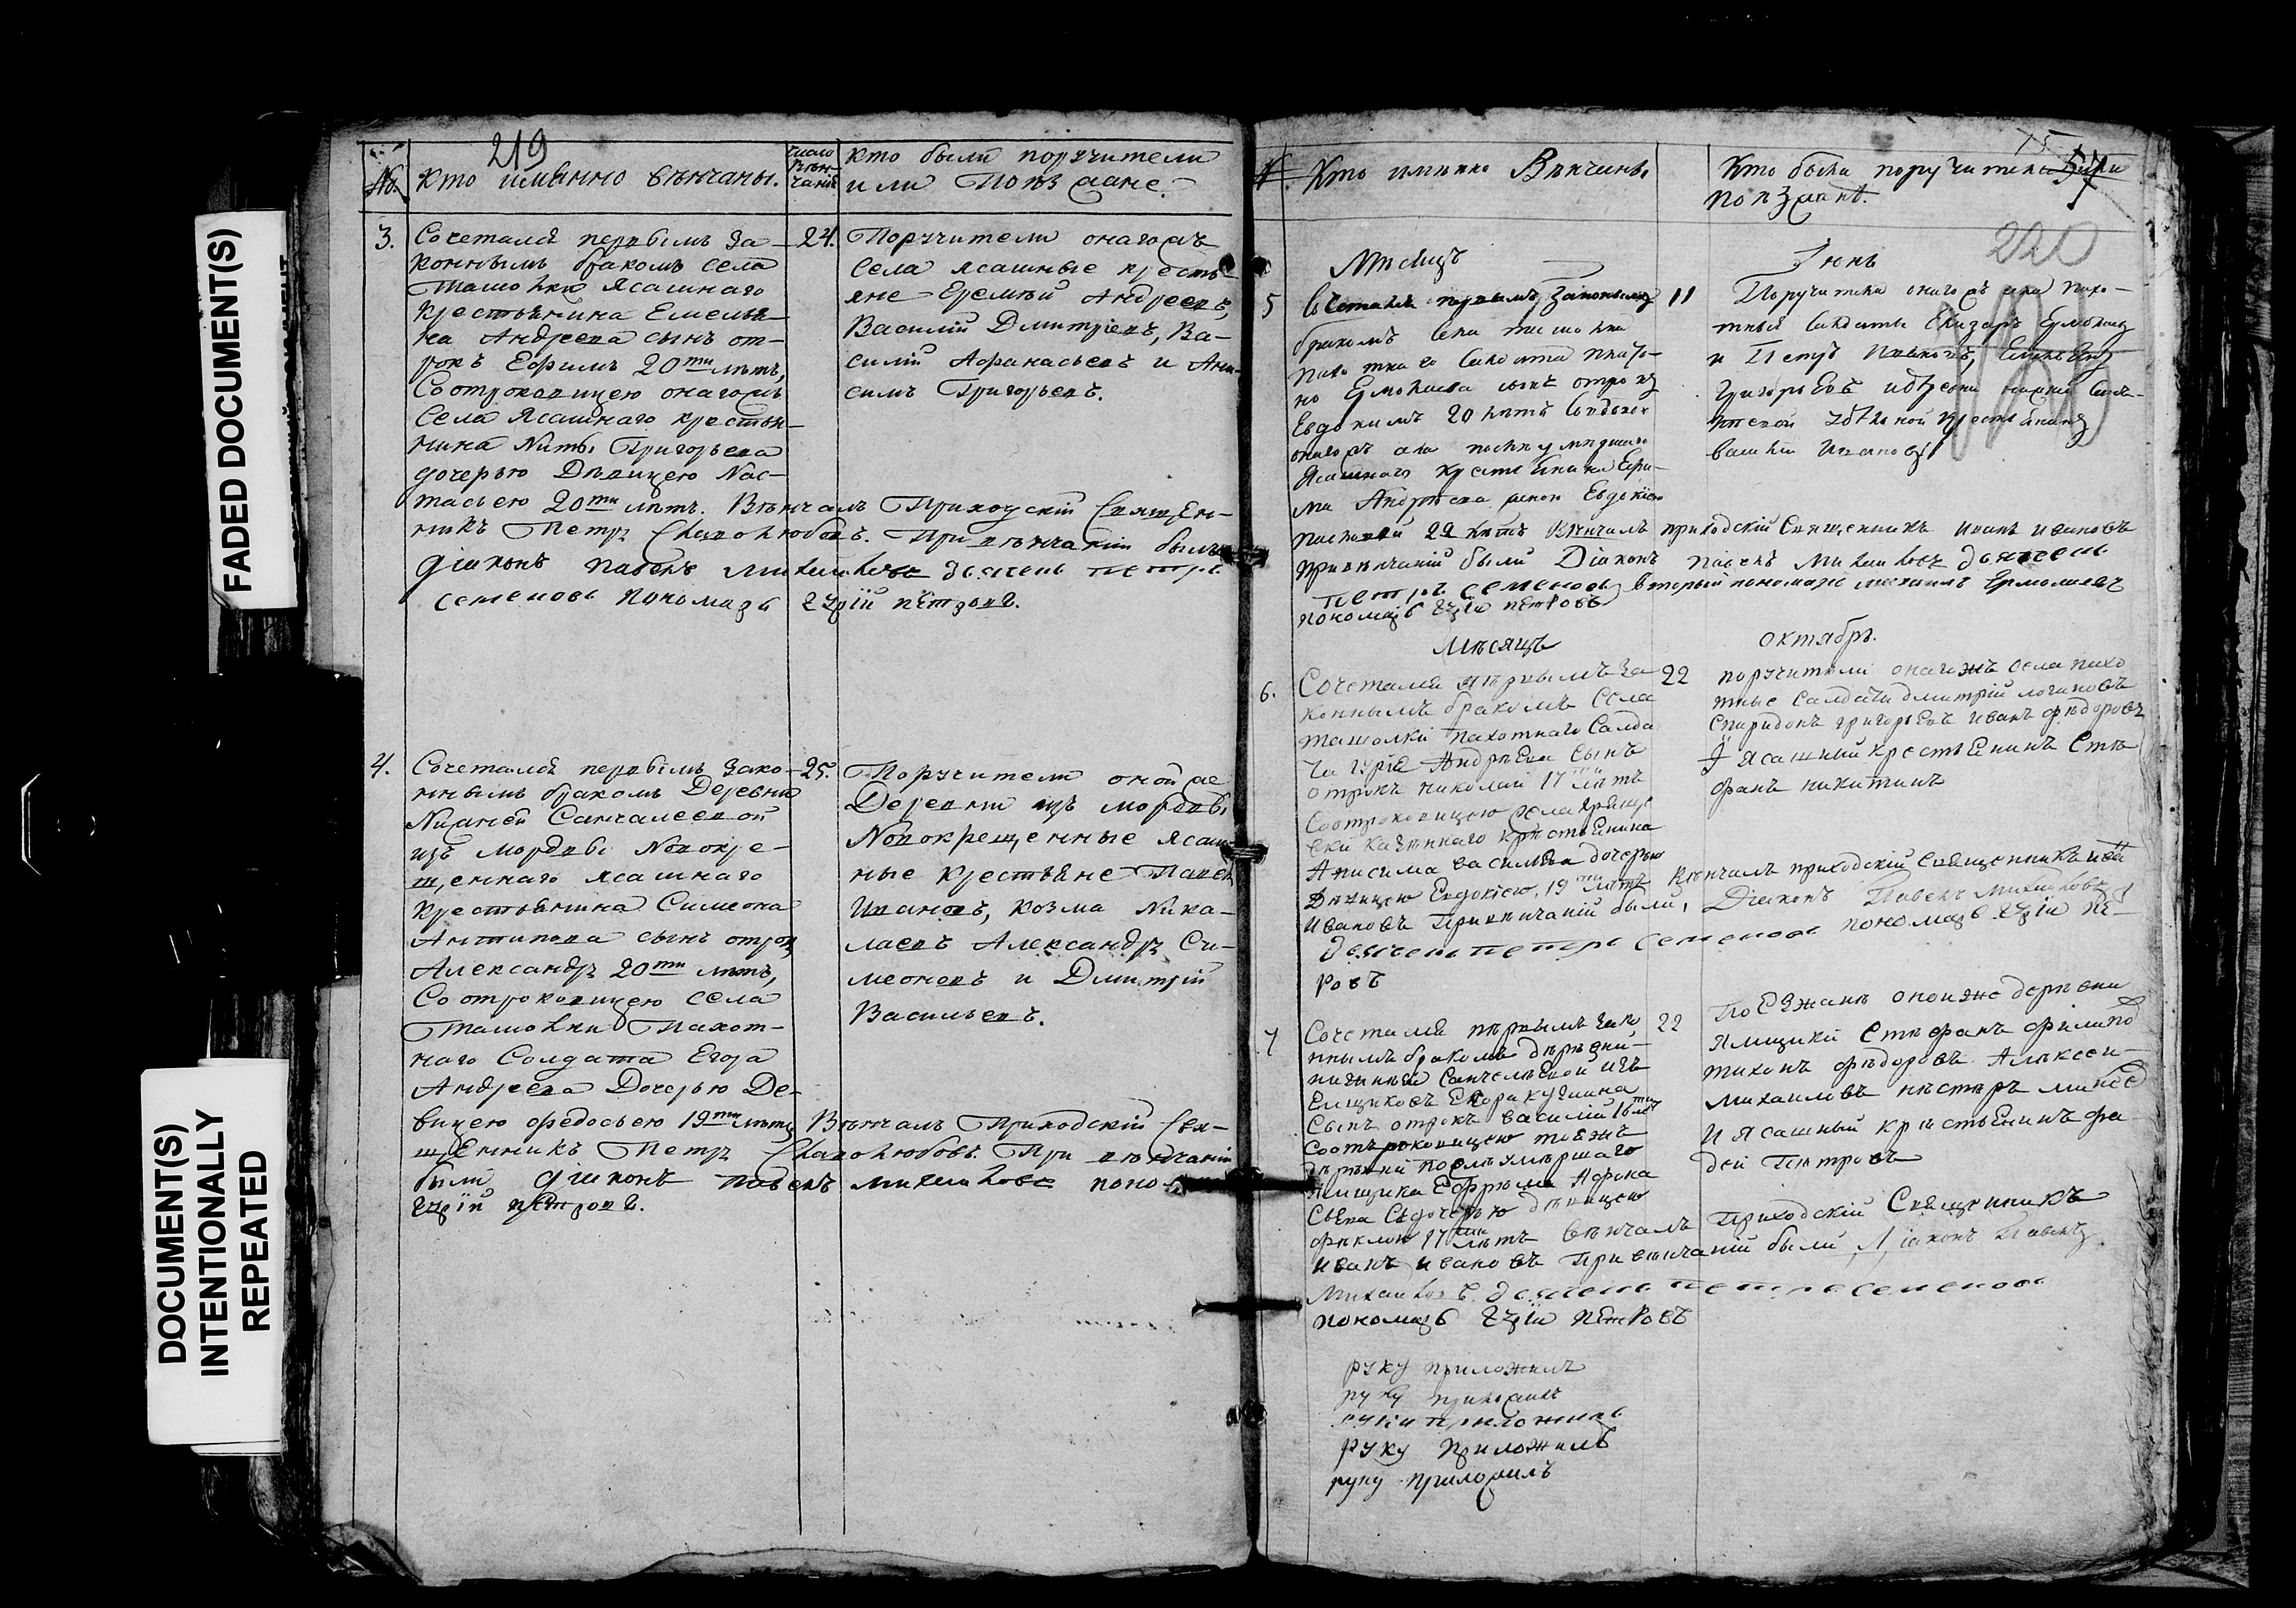 FADED DOCUMENT(S)
DOCUMENT(S)
INTENTIONALLY
REPEATED
219
№.
Кто имянно венчаны.
число
вѣн-
чанiя
кто были поручители
или Поѣзжане.
3.
Сочетался первымъ за-
коннымъ бракомъ села
Ташолки Ясашнаго
Крестьянина Емелья-
на Андреева сынъ от-
рокъ Ефимъ 20ти лѣтъ,
Соотроковицею онагожъ
Села Ясашнаго крестья-
нина Никиты Григорьева
дочерью Дѣвицею Нас-
тасьею 20ти лѣтъ. Вѣнчалъ Приходскiй Священ-
никъ Петръ Славолюбовъ. При вѣнчанiи были
дiяконъ павелъ михаиловъ дьячекъ петръ
семеновъ пономарь гурiй петровъ.
24.
Поручители онагожъ
села ясашные кресть-
яне Еремѣй Андреевъ,
Василiй Дмитрiевъ, Ва-
силiй Афанасьевъ и Ани-
симъ Григорьевъ.
4.
Сочетался первымъ зако-
ннымъ бракомъ Деревни
Нижней Санчалеевой
изъ мордвы Новокре-
щеннаго ясашнаго
крестьянина Симеона
Антипова сынъ отрокъ
Александръ 20ти лѣтъ,
Соотроковицею села
Ташолки Пахот-
наго Солдата Егора
Андреева Дочерью Де-
вицею федосьею 19ти лѣтъ Вѣнчалъ Приходскiй Свя-
щенникъ Петръ Славолюбовъ. При вѣнчанiи
были дiяконъ павелъ михаиловъ
гурiй петровъ.
25.
Поручители онойже
Деревни изъ мордвы
Новокрещенные ясаш-
ные крестьяне Павелъ
Ивановъ, козма Нико-
лаевъ Александръ Си-
меоновъ и Дмитрiй
Васильевъ.
57
220
Кто имянно Вѣнчаны.
Кто были поручители или
поѣзжанѣ.
Мѣсяцъ
Iюнь
5
Сочетался первымъ законнымъ
бракомъ села ташолки
пахотнаго Салдата
Ермолаева сынъ отрокъ
Евдокимъ 20 лѣтъ
ясашнаго крестьянина
Андрѣева женою Евдокiею
22 лѣтъ вѣнчалъ приходскiй Священникъ иванъ ивановъ
привѣнчанiй были Дiаконъ павелъ Михаиловъ дьячекъ
петръ семеновъ вторый пономарь михаилъ Ермолаевъ
пономарь гурiй петровъ
11
Поручители онагожъ села пахо-
тные Салдаты Елизаръ Ермолаевъ
и Петръ Ивановъ,
Григорьевъ
крестьянинъ
василiй Ивановъ
Мѣсяцъ
октябрь.
6.
Сочетался пѣрвымъ за
коннымъ бракомъ села
ташолки пахотнаго Салда
та гурiя Андрѣева Сынъ
отрокъ николай 17ти лѣтъ
Соотроковицею
крѣстьянина
Анисима василѣва дочерью
Дѣвицею Евдокiею 19ти лѣтъ Вѣнчалъ приходскiй Священникъ иванъ
ивановъ Привѣнчанiй были, Дiаконъ Павелъ Михаиловъ
дьячекъ петръ семеновъ пономарь гурiй пе-
ровъ
22
поручители онагожъ села пахо
тные салдаты дмитрiй логиновъ
Спиридонъ григорьевъ иванъ фѣдоровъ
Й Ясашный крестьянинъ Стѣ
фанъ никитинъ
7
Сочетался пѣрвымъ зако
ннымъ бракомъ дѣрѣвни
нижнѣй Санчелѣвой изъ
Емщиковъ
Сынъ отрокъ василiй 18ти лѣтъ
Соотъроковицею тоежъ
дѣрѣвни послѣ умершаго
Ямщика Ефрема Афона
Сьева Съдочерью дѣвицею
фѣклою 17ти лѣтъ вѣнчалъ Приходскiй Священникъ
иванъ ивановъ Привѣнчанiй были Дiаконъ Павелъ
Михаиловъ дьячекъ петръ семеновъ
пономарь гурiй петровъ
22
ПоЕзжанѣ онойже дерѣвни
Ямщики Стѣфанъ филипов
тихонъ фѣдоровъ Алѣксей
михаиловъ нѣстеръ
и ясашный крѣстьянинъ фа
дей Пѣтровъ
руку приложилъ
руку приложилъ
руку приложилъ
руку приложилъ
руку приложилъ